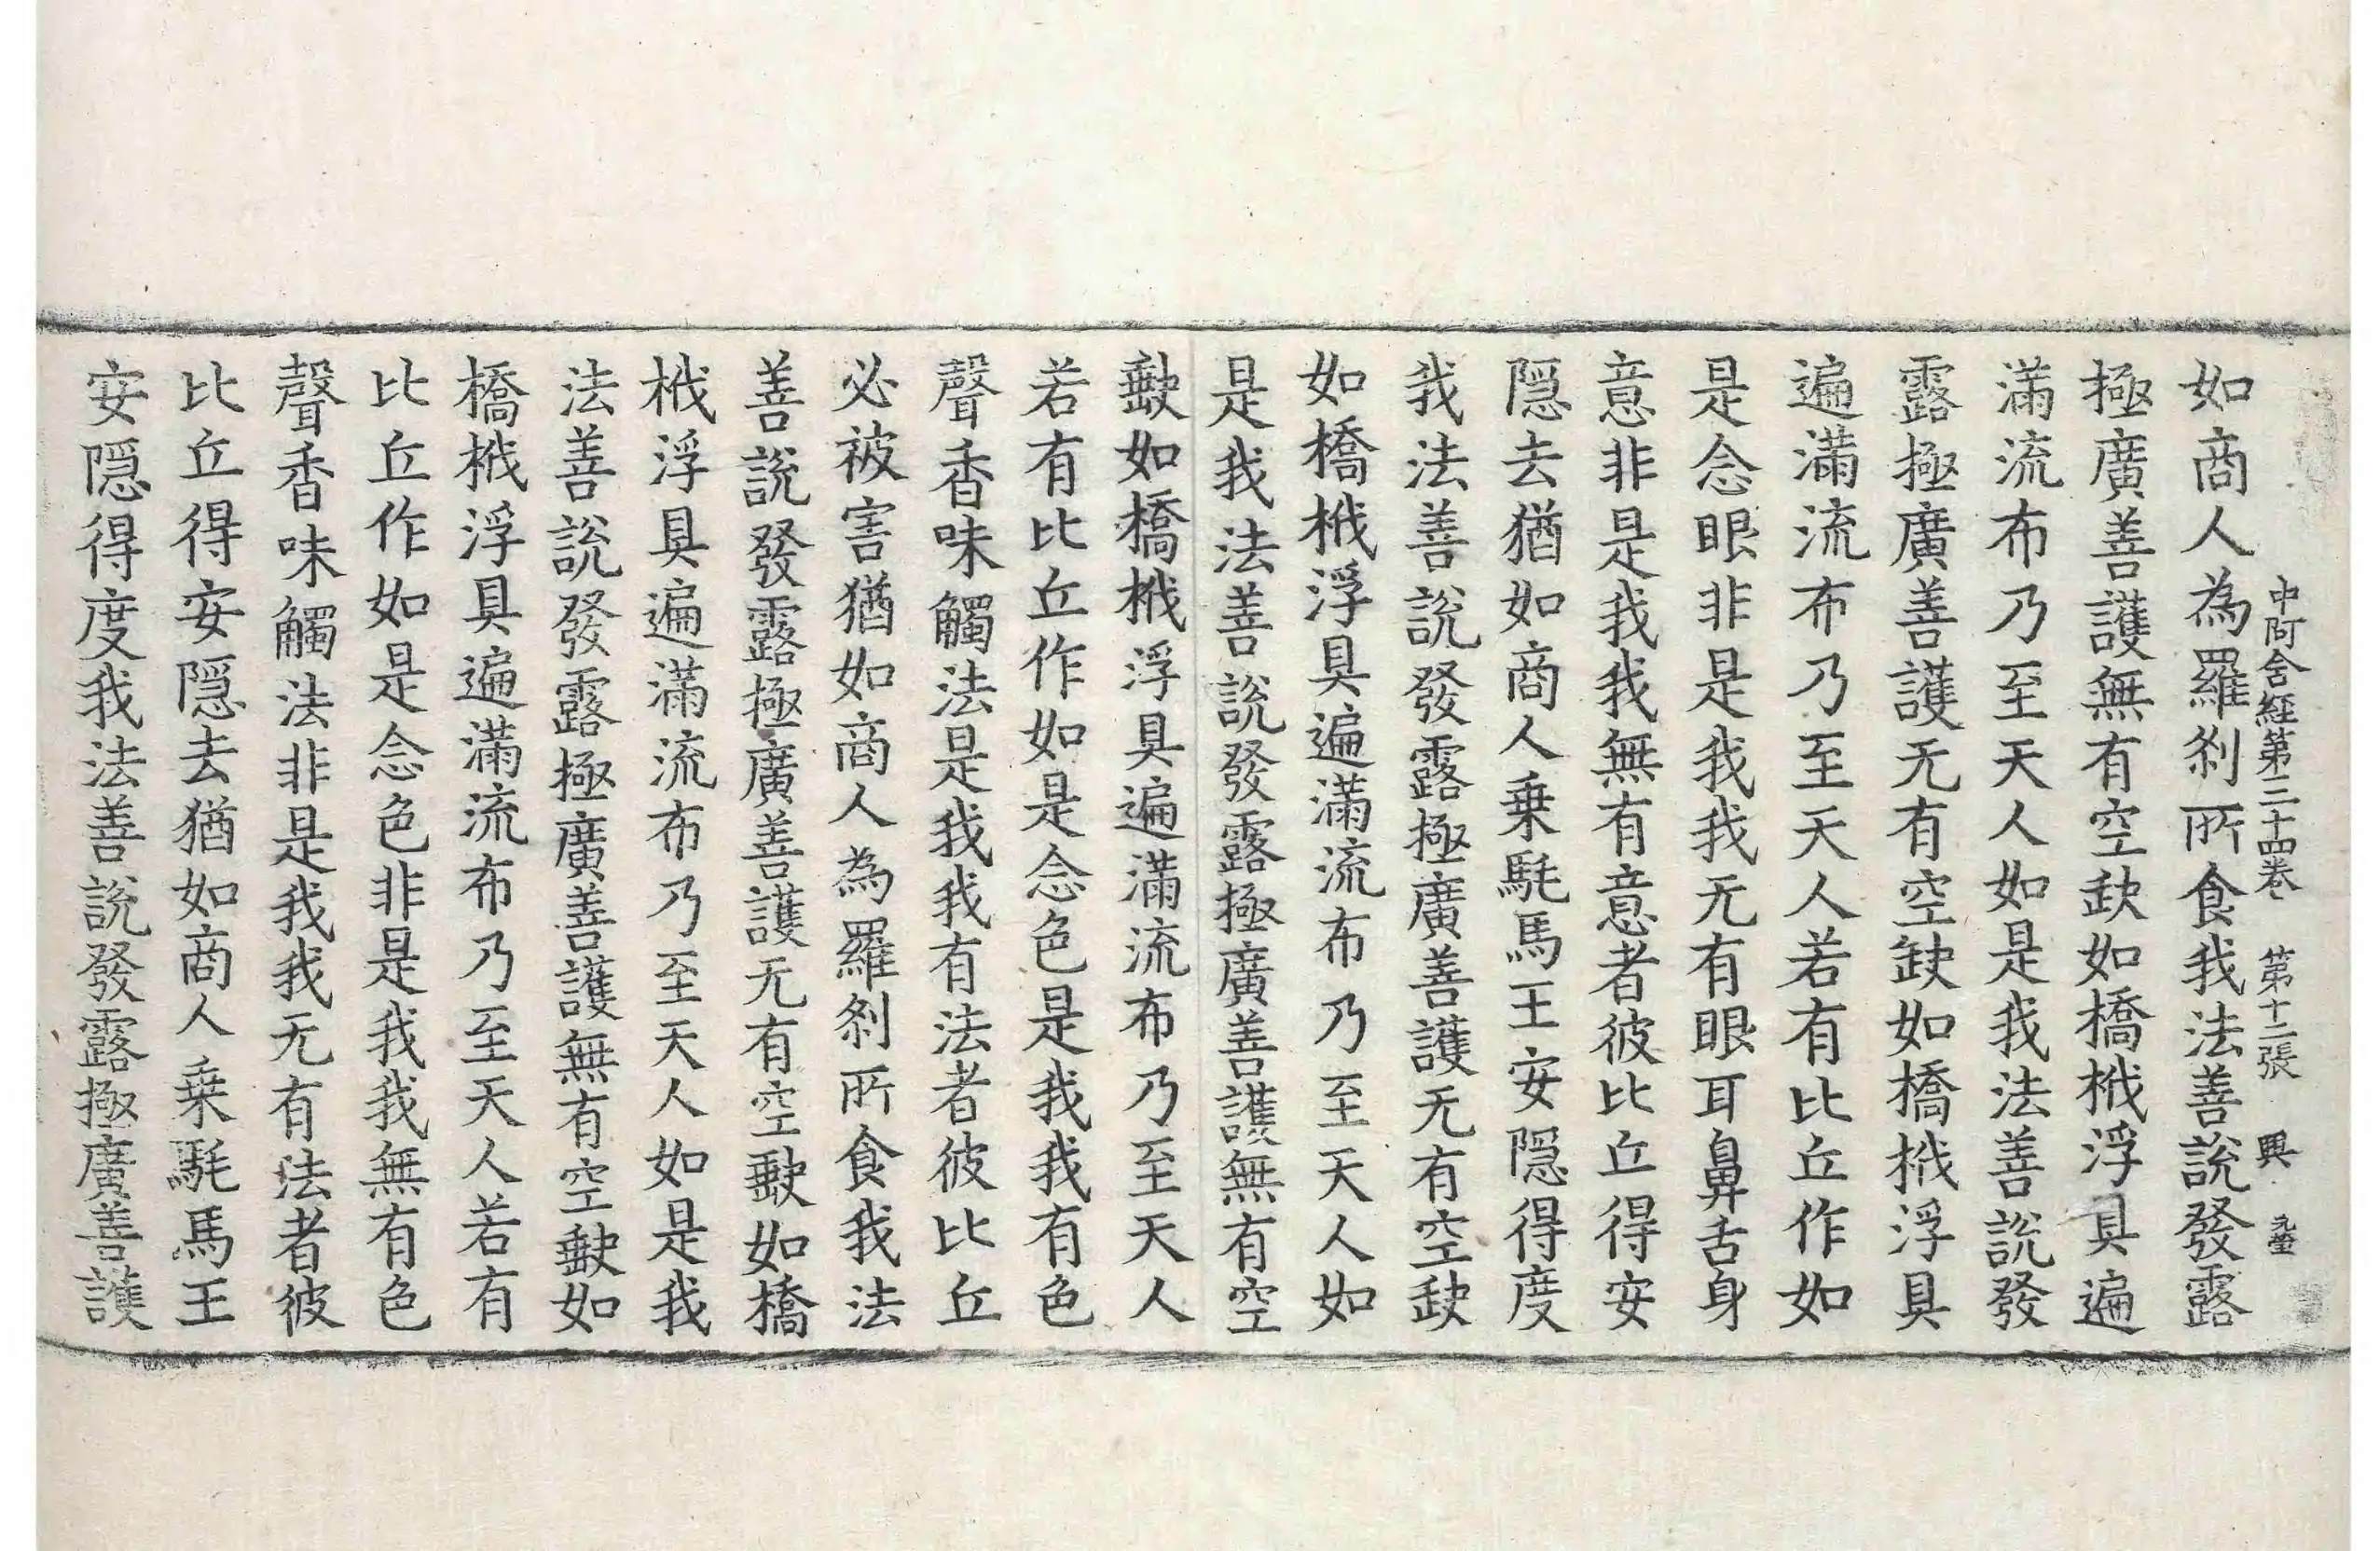 中阿含經第三十四卷 第十二張 興
如商人為羅刹所食我法善說發露
極廣善護無有空缺如橋栰浮具遍
滿流布乃至天人如是我法善說發
露極廣善護无有空缺如橋栰浮具
遍滿流布乃至天人若有比丘作如
是念眼非是我我无有眼耳鼻舌身
意非是我我無有意者彼比丘得安
隱去猶如商人乗髦馬王安隱得度
我法善說發露極廣善護无有空缺
如橋栰浮具遍滿流布乃至天人如
是我法善說發露極廣善護無有空
䥯如橋栰浮具遍滿流布乃至天人
若有比丘作如是念色是我我有色
聲香味觸法是我我有法者彼比丘
必被害猶如商人為羅刹所食我法
善說發露極廣善護无有空䥯如橋
栰浮具遍滿流布乃至天人如是我
法善說發露極廣善護無有空䥯如
橋栰浮具遍滿流布乃至天人若有
比丘作如是念色非是我我無有色
聲香味觸法非是我我无有法者彼
比丘得安隱去猶如商人乗髦馬王
安隱得度我法善說發露極廣善護